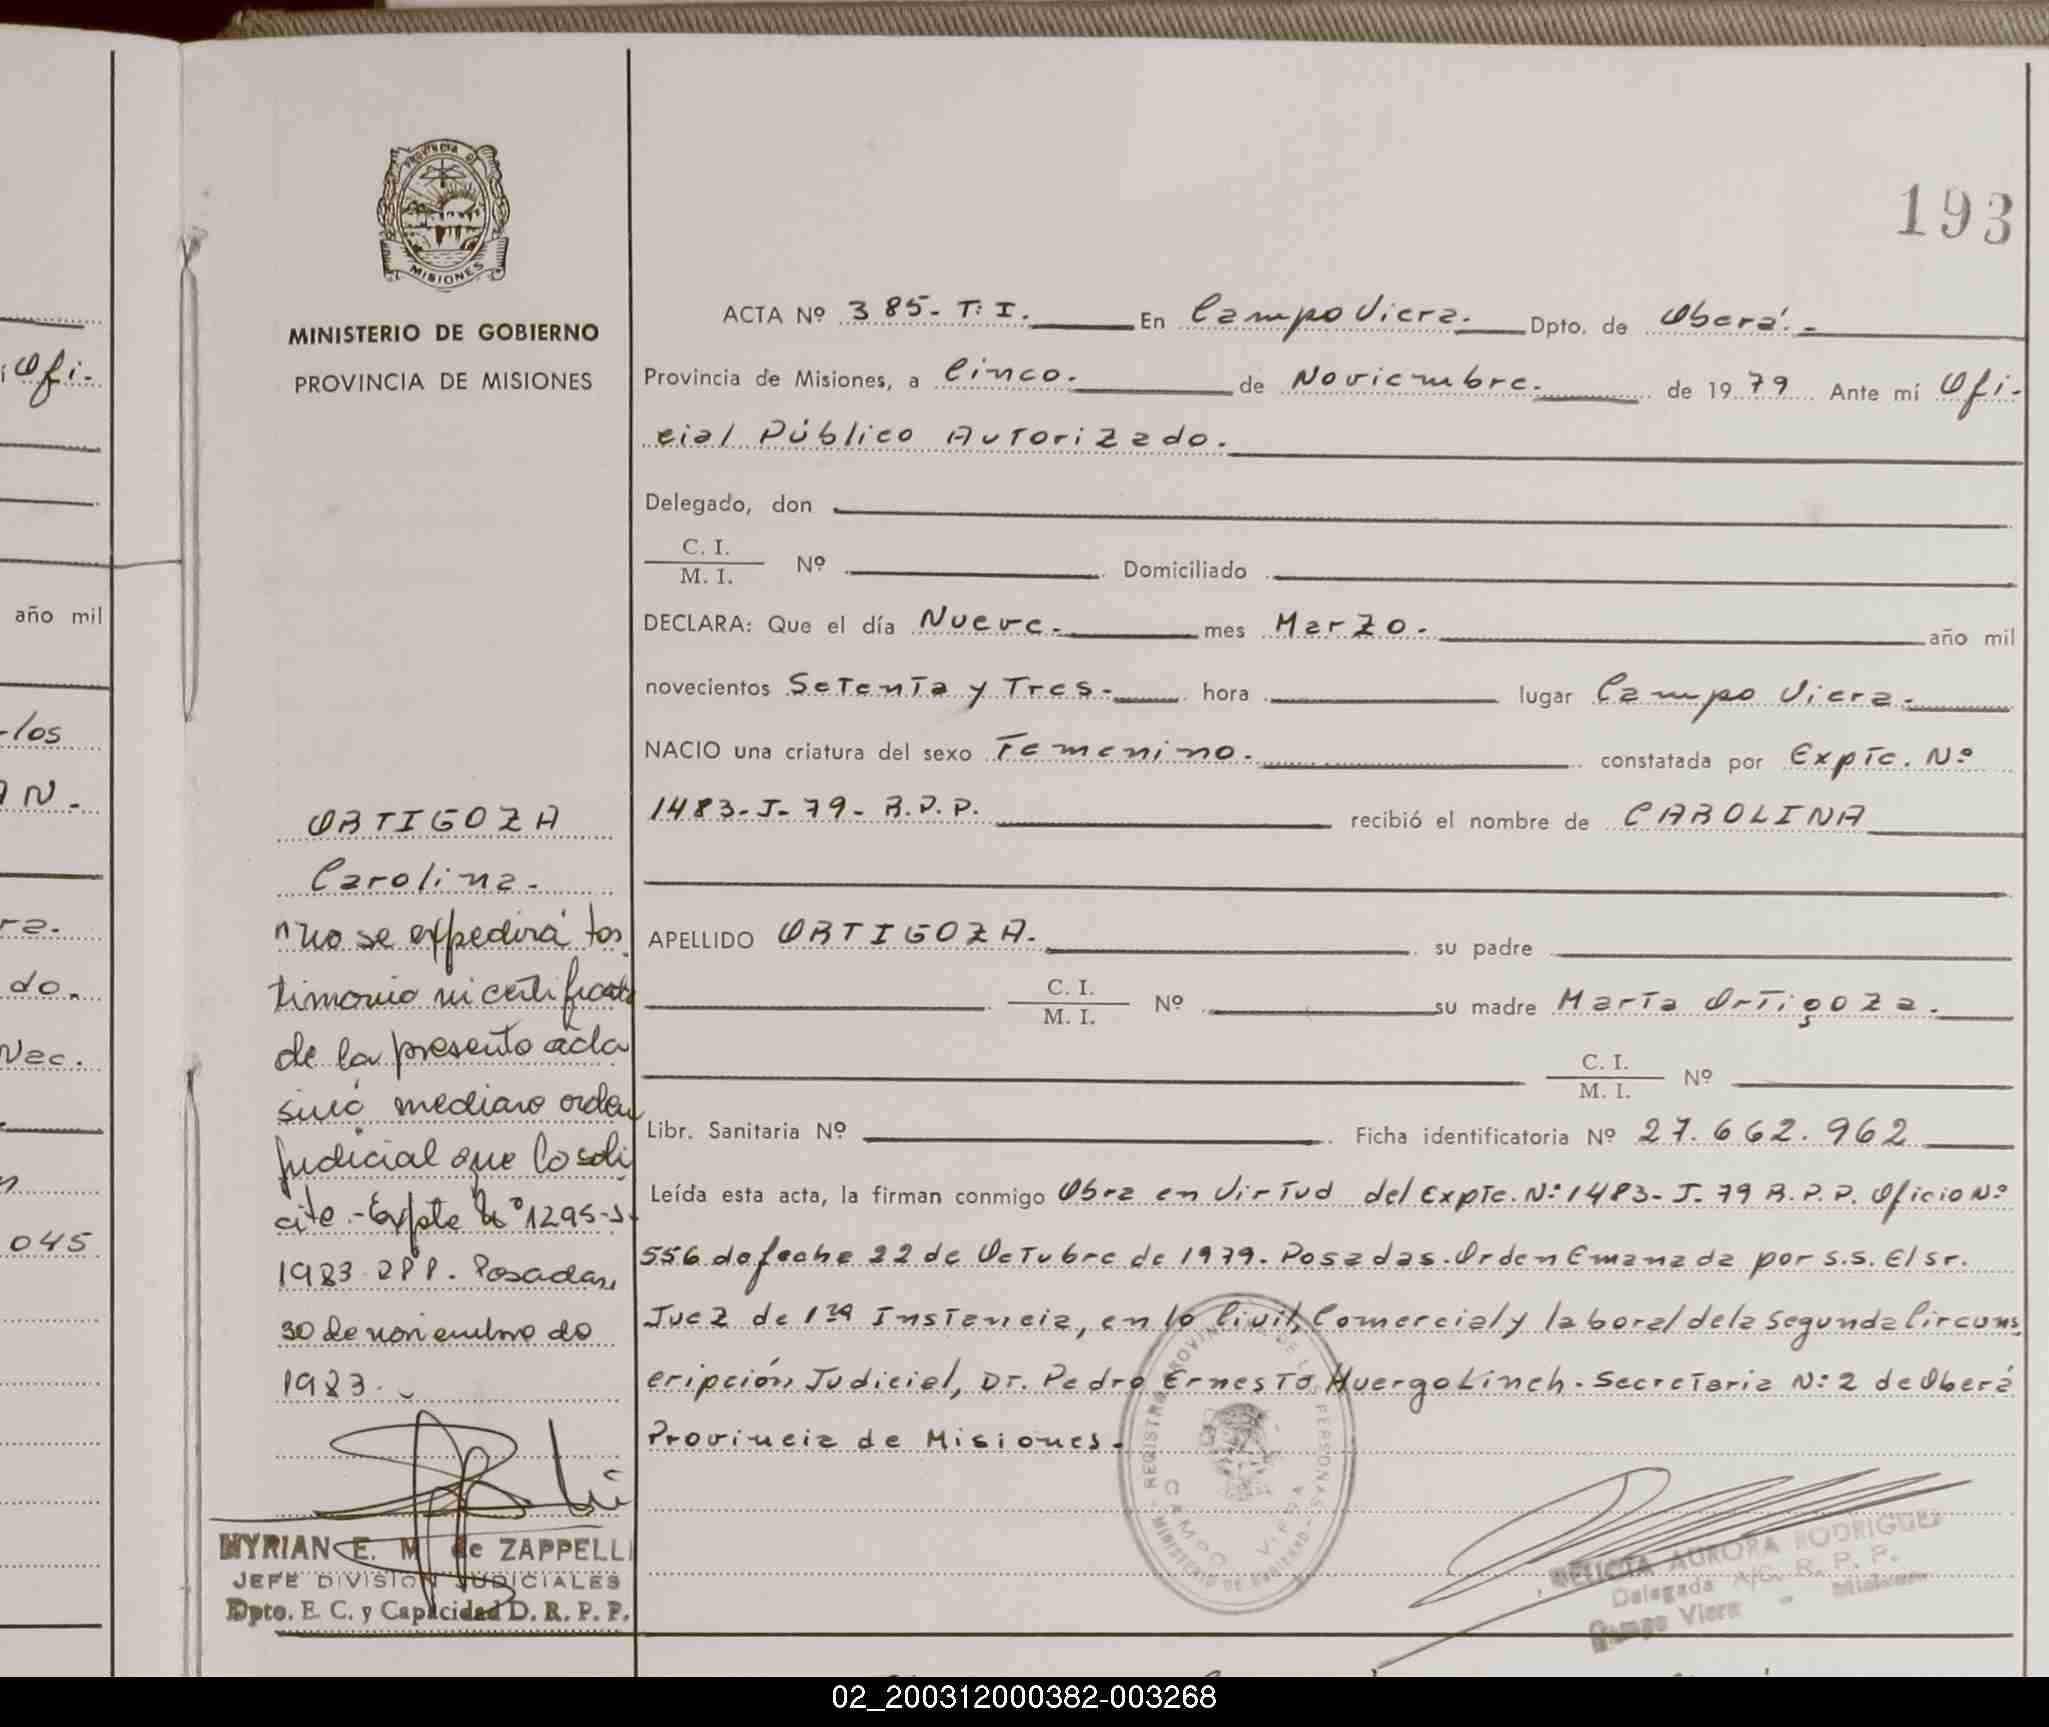 193
PROVINCIA DE
MISIONES
MINISTERIO DE GOBIERNO
PROVINCIA DE MISIONES
ORTIGOZA
Carolina.
"no se expedirá tes
timonio ni certificado
de la presente acta
sinó mediare orden
Judicial que lo soli
cite.-Expte Nº 1295-J-
1983. RPP. Posadas,
30 de noviembre de
1983.
MYRIAN E. M de ZAPPELLI
JEFE DIVISION JUDICIALES
Dpto. E. C. y Capacidad D. R. P. P.
ACTA Nº 385- T: I. En Campo Viera. Dpto. de Oberá.-
Provincia de Misiones, a Cinco. de Noviembre. de 1979 Ante mí Ofi-
cial Público Autorizado.
Delegado, don
C. I.
M. I. Nº Domiciliado
DECLARA: Que el día Nueve. mes Marzo. año mil
novecientos Setenta y Tres. hora lugar Campo Viera.
NACIO una criatura del sexo Femenino. constatada por Expte. Nº
1483-J-79-R.P.P. recibió el nombre de CAROLINA
APELLIDO ORTIGOZA. su padre
C. I.
M. I. Nº su madre María Ortigoza.
C. I.
M. I. Nº
Libr. Sanitaria Nº Ficha identificatoria Nº 27.662.962
Leída esta acta, la firman conmigo Obra en Virtud del Expte. Nº 1483-J-79 R.P.P. Oficio Nº
556 de feche 22 de Octubre de 1979. Posadas. Orden Emanada por S.S. El sr.
Juez de 1ra Instancia, en lo Civil, Comercial y laboral dela Segunda Circuns
cripción Judicial, Dr. Pedro Ernesto Huergo Linch. Secretaria Nº 2 de Oberá
Provincia de Misiones.
REGISTRO PROVINCIAL DE LAS PERSONAS
CAMPO VIERA
MINISTERIO DE GOBIERNO
FELICTA AURORA RODRIGUEZ
Delegada A/C. R. P. P.
Campo Viera - Misiones
í Ofi-
año mil
-los
AN.
ra.
do.
Nac.
n
045
02_200312000382-003268